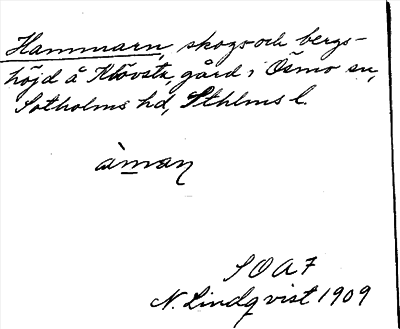 Hammarn, skogs och bergs-
höjd å Klövsta, gård i Ösmo sn,
Sotholms hd, Sthlms l.
àman
SOA 7
N. Lindqvist 1909